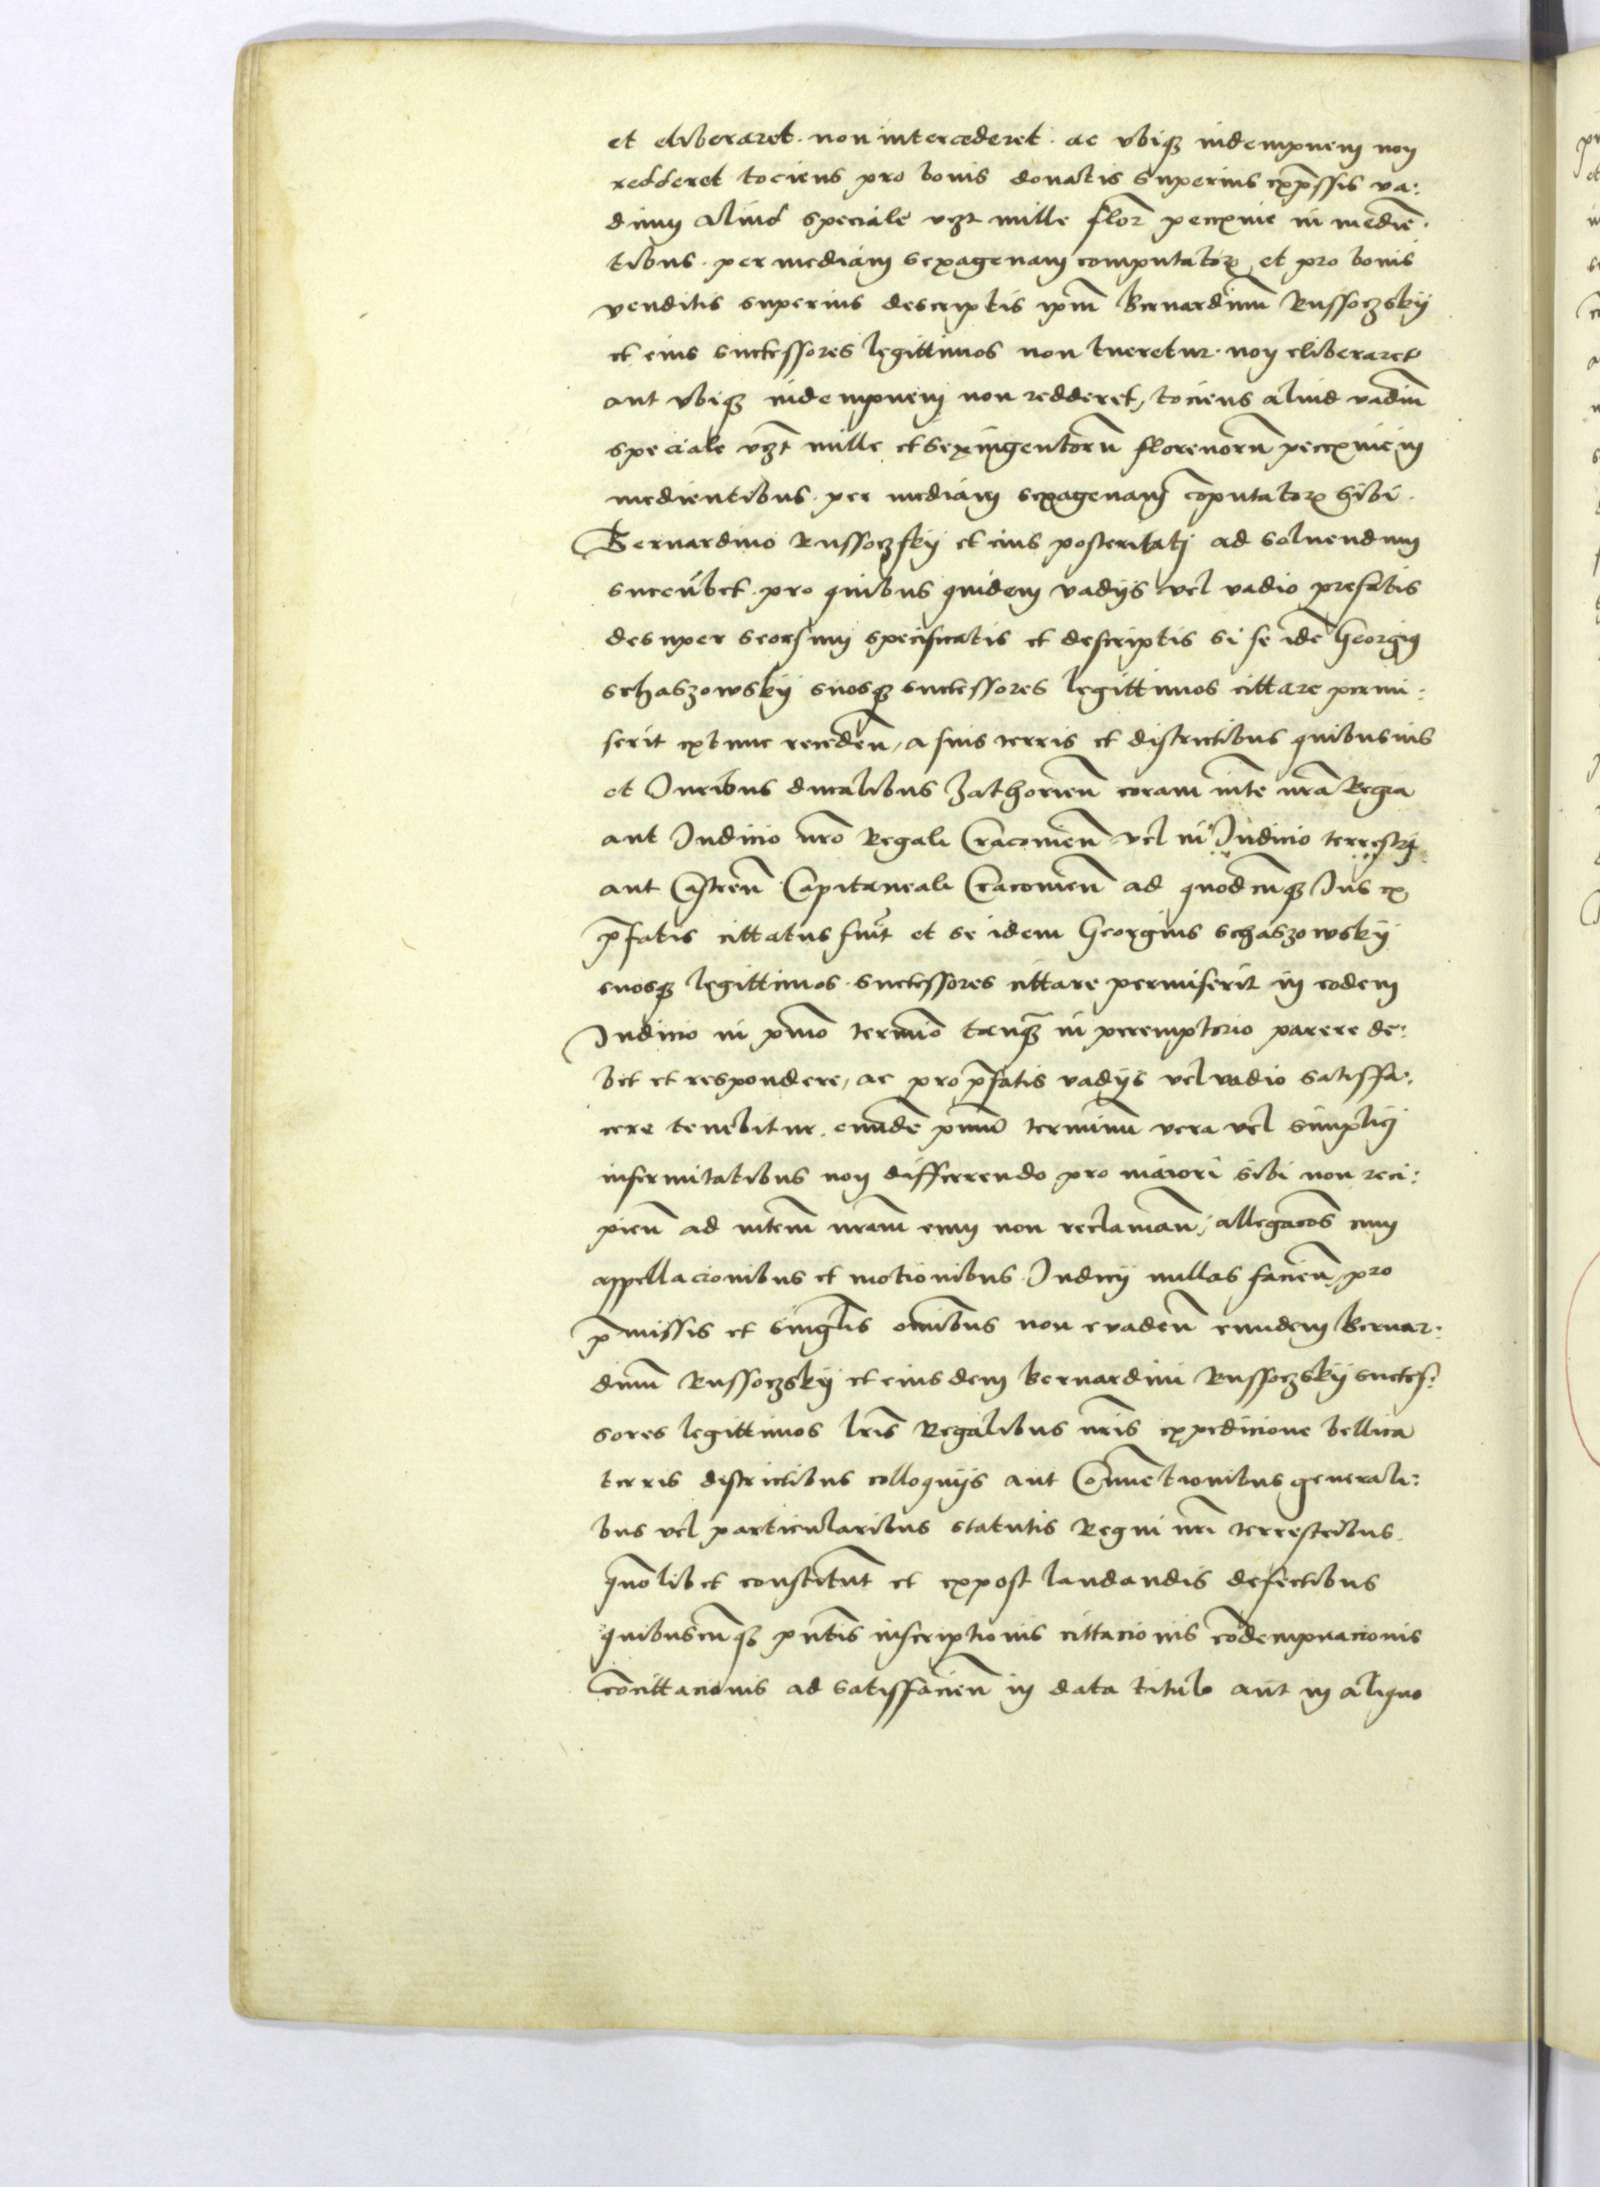 et eliberaret. non intercederet. ac vbiqȝ indempnem non
redderet tociens pro bonis donatis superius exp̄ssis va:
dium aliud speciale vȝt mille flor̄ pecunie in medie̅:
tibus. per mediam sexagenam computator̄ et pro bonis
venditis superius descriptis ip̄m Bernardinu̅ Russoczskij
et eius successores legittimos non tueretur. non eliberaret
aut vbiqȝ indempnem non redderet, tociens aliud vadiu̅
speciale vȝt mille et sexingentoru̅ florenoru̅ pecunie in
medientibus. per mediam sexagenam co̅putator̄ sibi.
Bernardino Russoczskij et eius posteritatj ad soluendum
succu̅bet. pro quibus quidem vadijs vel vadio prefatis
desuper seorsum specificatis et descriptis si se ide̅ Georgiu̅
schaszowskij suosqȝ successores legittimos cittare permi:
serit extunc receden̅, a suis terris et districtibus quibusuis
et Juribus ducalibus Zathorien̅ coram mt̄e nr̄a Regia
aut Judicio nr̄o Regali Cracouien̅ vel in Judicio terrestrj
aut Castren̅ Capitaneali Cracouien̅ ad quodcu̅qȝ Jus ex
p̄fatis cittatus fuit et se idem Georgius schaszowskij
suosqȝ legittimos successores cittare permiserit in eodem
Judicio in p̄mo termino tanqȝ in peremptorio parere de:
bet et respondere, ac pro p̄fatis vadijs vel vadio satisfa:
cere tenebitur. eunde̅ p̄mu̅ terminu̅ vera vel simplicj
infirmitatibus non differrendo pro maiori sibi non reci:
pien̅ ad mt̄em nr̄am eum non reclaman̅, allegaco̅s cum
appellacionibus et motionibus Judicij nullas facien̅, pro
p̄missis et sing̅lis omnibus non euaden̅ eundem Bernar:
dinu̅ Russoczskij et eiusdem Bernardini Russoczskij succes:
sores legittimos lr̄is Regalibus nr̄is expedicione bellica
terris districtibus colloquijs aut Conuentionibus generali:
bus vel particularibus statutis Regni nr̄i terrestribus.
quo̅libet constitut̅ et expost laudandis defectibus
quibuscu̅qȝ pn̄tis inscriptionis cittacionis co̅dempnacionis
co̅cittacionis ad satisfacien̅ in data titulo aut in aliquo